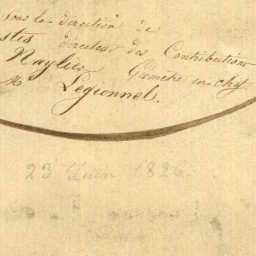 sous la direction de
directeur des Contributions
Naylies Géomètre en chef
Mr Legionnel.
23 Juin 1826